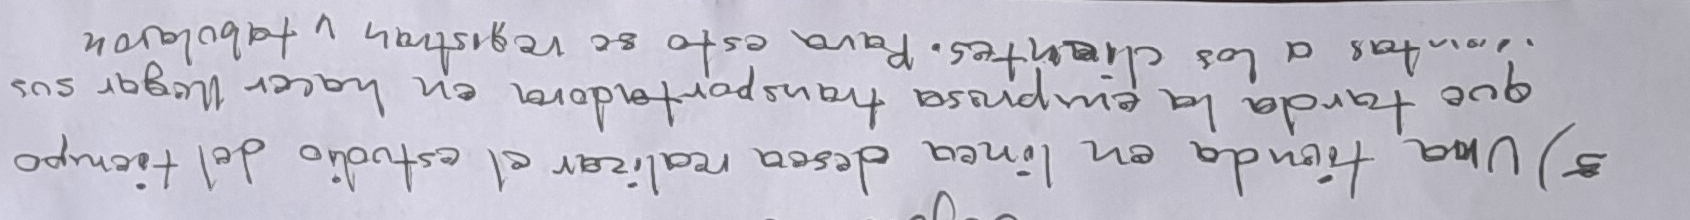 3) Una tienda en línea desea realizar el estudio del tiempo
que tarda la empresa transportadora en hacer llegar sus
a los clientes. Para esto se registran y tabularon